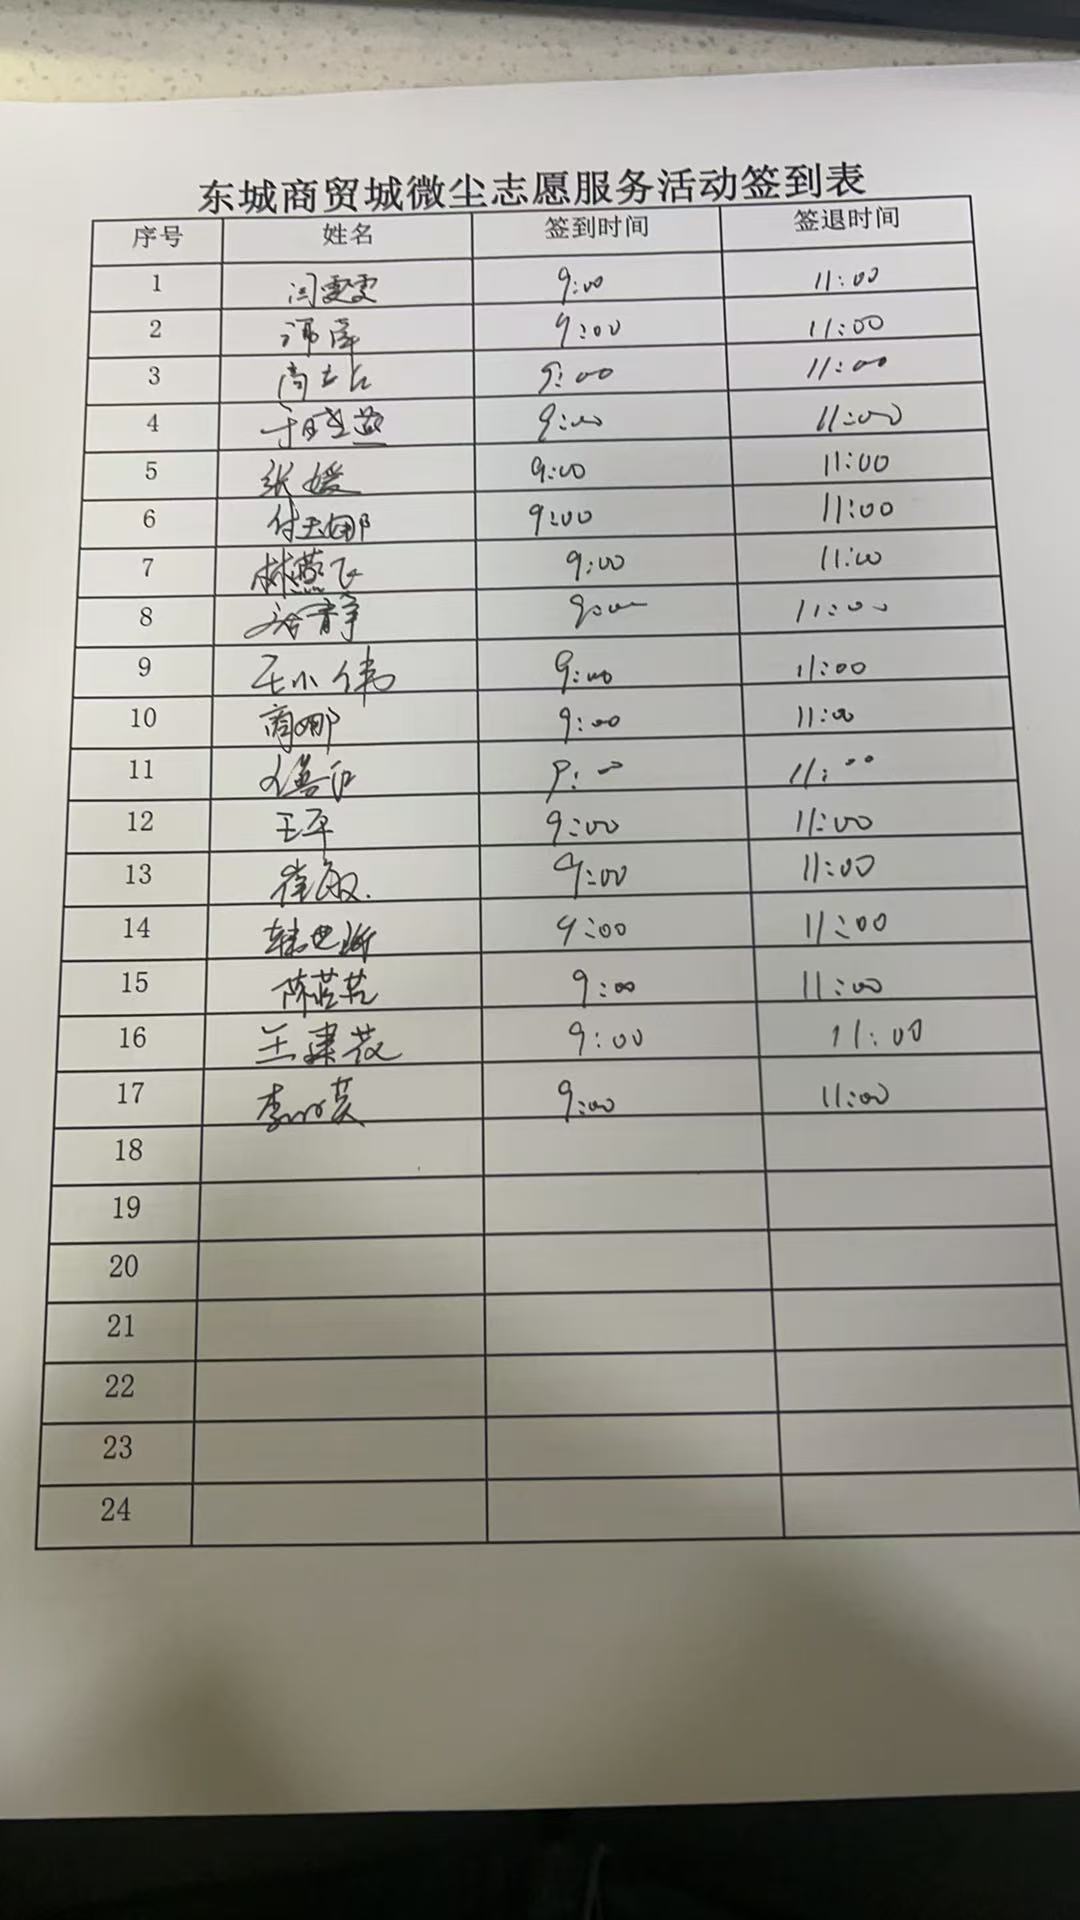 东城商贸城微尘志愿服务活动签到表
序号 姓名 签到时间 签退时间
1 闫雯雯 9:00 11:00
2 9:00 11:00
3 9:00 11:00
4 9:00 11:00
5 张媛 9:00 11:00
6 付玉娜 9:00 11:00
7 林燕飞 9:00 11:00
8 静 9:00 11:00
9 王小伟 9:00 11:00
10 商娜 9:00 11:00
11 9:00 11:00
12 王平 9:00 11:00
13 崔敏 9:00 11:00
14 9:00 11:00
15 9:00 11:00
16 9:00 11:00
17 9:00 11:00
18
19
20
21
22
23
24